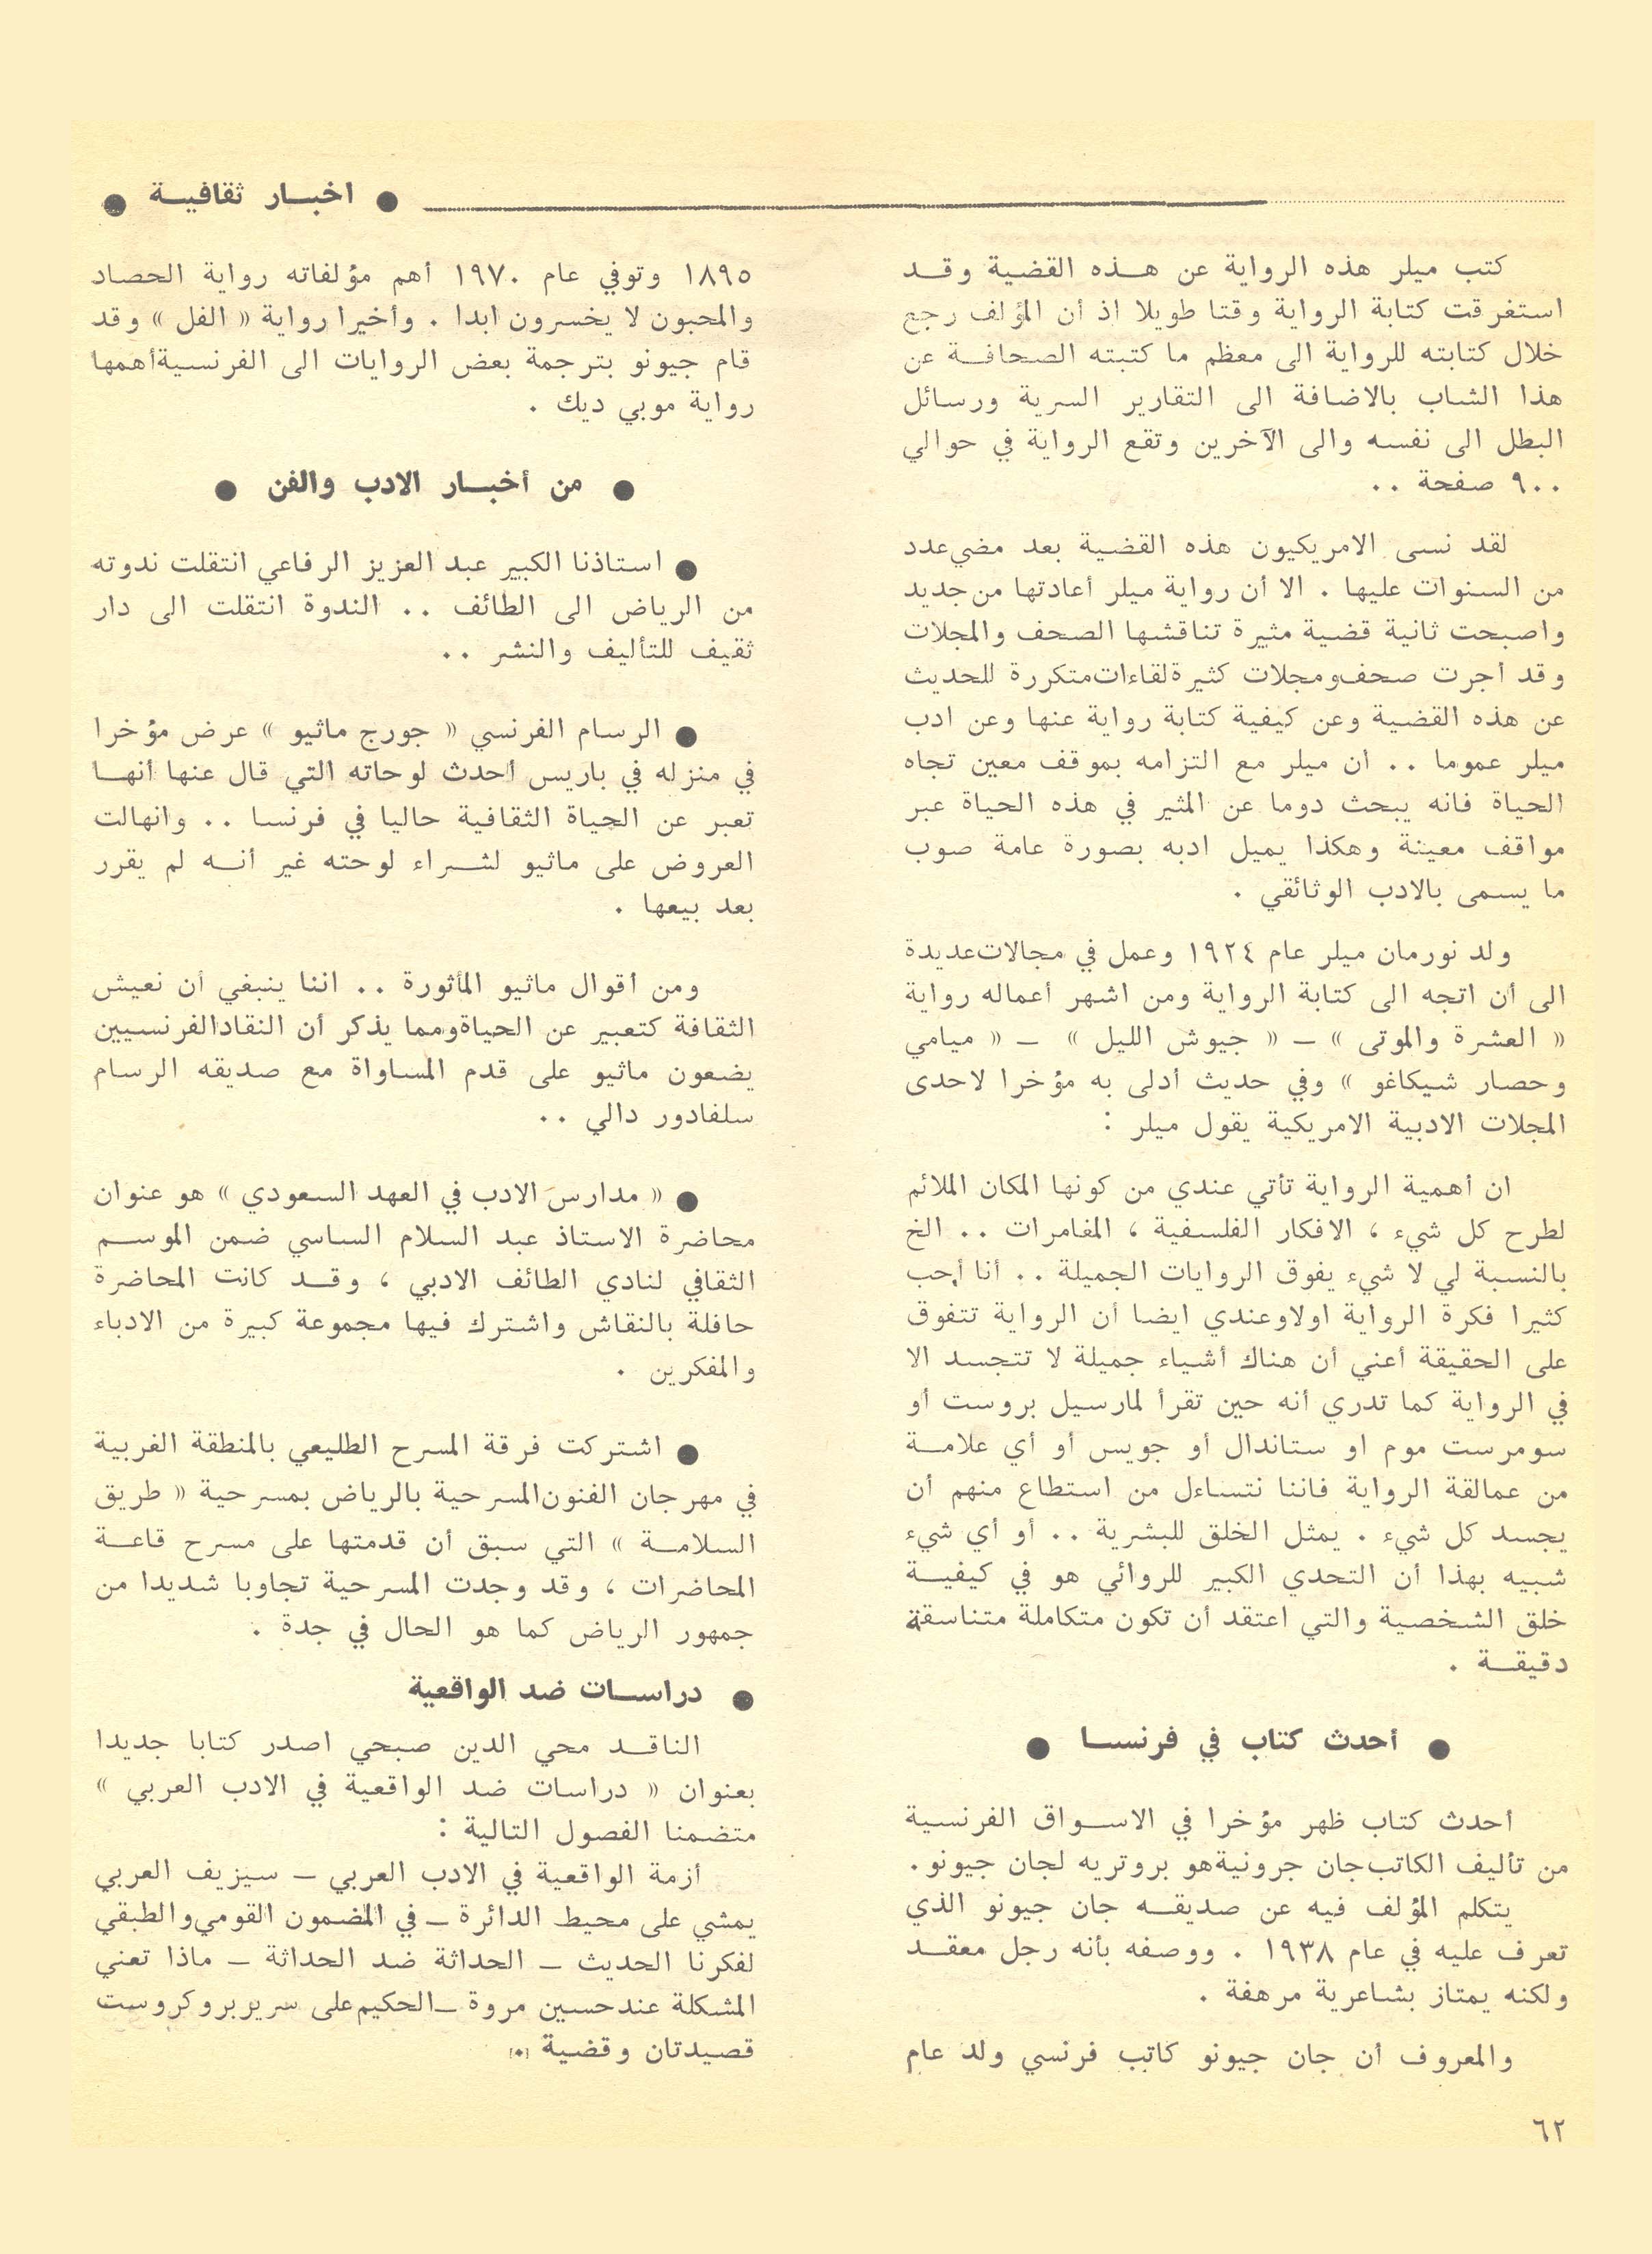 ● اخبـــار ثقافيـــة ●
كتب ميلر هذه الرواية عن هـــذه القضية وقـــد
استغرقت كتابة الرواية وقتا طويلا اذ أن المؤلف رجع
خلال كتابته للرواية الى معظم ما كتبته الصحافـــة عن
هذا الشاب بالاضافة الى التقارير السرية ورسائل
البطل الى نفسه والى الآخرين وتقع الرواية في حوالي
٩٠٠ صفحة ..
لقد نسى الامريكيون هذه القضية بعد مضي عدد
من السنوات عليها . الا أن رواية ميلر أعادتها من جديد
واصبحت ثانية قضية مثيرة تناقشها الصحف والمجلات
وقد أجرت صحف ومجلات كثيرة لقاءات متكررة للحديث
عن هذه القضية وعن كيفية كتابة رواية عنها وعن ادب
ميلر عموما .. ان ميلر مع التزامه بموقف معين تجاه
الحياة فانه يبحث دوما عن المثير في هذه الحياة عبر
مواقف معينة وهكذا يميل ادبه بصورة عامة صوب
ما يسمى بالادب الوثائقي .
ولد نورمان ميلر عام ١٩٢٤ وعمل في مجالات عديدة
الى أن اتجه الى كتابة الرواية ومن اشهر أعماله رواية
« العشرة والموتى » – « جيوش الليل » – « ميامي
وحصار شيكاغو » وفي حديث أدلى به مؤخرا لاحدى
المجلات الادبية الامريكية يقول ميلر :
ان أهمية الرواية تأتي عندي من كونها المكان الملائم
لطرح كل شيء ، الافكار الفلسفية ، المغامرات .. الخ
بالنسبة لي لا شيء يفوق الروايات الجميلة .. أنا أحب
كثيرا فكرة الرواية اولا وعندي ايضا أن الرواية تتفوق
على الحقيقة أعني أن هناك أشياء جميلة لا تتجسد الا
في الرواية كما تدري أنه حين تقرأ لمارسيل بروست أو
سومرست موم او ستاندال أو جويس أو أي علامـــة
من عمالقة الرواية فاننا نتساءل من استطاع منهم أن
يجسد كل شيء . يمثل الخلق للبشرية .. أو أي شيء
شبيه بهذا أن التحدي الكبير للروائي هو في كيفيـــة
خلق الشخصية والتي اعتقد أن تكون متكاملة متناسقة
دقيقـــة .
● أحدث كتاب في فرنســـا ●
أحدث كتاب ظهر مؤخرا في الاســـواق الفرنسية
من تأليف الكاتب جان جرونية هو بروتريه لجان جيونو .
يتكلم المؤلف فيه عن صديقـــه جان جيونو الذي
تعرف عليه في عام ١٩٣٨ . ووصفه بأنه رجل معقـــد
ولكنه يمتاز بشاعرية مرهفة .
والمعروف أن جان جيونو كاتب فرنسي ولد عام
١٨٩٥ وتوفي عام ١٩٧٠ أهم مؤلفاته رواية الحصاد
والمحبون لا يخسرون ابدا . وأخيرا رواية « الفل » وقد
قام جيونو بترجمة بعض الروايات الى الفرنسية أهمها
رواية موبي ديك .
● من أخبـــار الادب والفن ●
● استاذنا الكبير عبد العزيز الرفاعي انتقلت ندوته
من الرياض الى الطائف .. الندوة انتقلت الى دار
ثقيف للتأليف والنشر ..
● الرسام الفرنسي « جورج ماثيو » عرض مؤخرا
في منزله في باريس أحدث لوحاته التي قال عنها أنهـــا
تعبر عن الحياة الثقافية حاليا في فرنسا .. وانهالت
العروض على ماثيو لشـــراء لوحته غير أنـــه لم يقرر
بعد بيعها .
ومن أقوال ماثيو المأثورة .. اننا ينبغي أن نعيش
الثقافة كتعبير عن الحياة ومما يذكر أن النقاد الفرنسيين
يضعون ماثيو على قدم المساواة مع صديقه الرسام
سلفادور دالي ..
● « مدارس الادب في العهد السعودي » هو عنوان
محاضرة الاستاذ عبد السلام الساسي ضمن الموســـم
الثقافي لنادي الطائف الادبي ، وقـــد كانت المحاضرة
حافلة بالنقاش واشترك فيها مجموعة كبيرة من الادباء
والمفكرين .
● اشتركت فرقة المسرح الطليعي بالمنطقة الغربية
في مهرجان الفنون المسرحية بالرياض بمسرحية « طريق
السلامـــة » التي سبق أن قدمتها على مسرح قاعـــة
المحاضرات ، وقد وجدت المسرحية تجاوبا شديدا من
جمهور الرياض كما هو الحال في جدة .
● دراســـات ضد الواقعية
الناقـــد محي الدين صبحي اصدر كتابا جديدا
بعنوان « دراسات ضد الواقعية في الادب العربي »
متضمنا الفصول التالية :
أزمة الواقعية في الادب العربي – سيزيف العربي
يمشي على محيط الدائرة – في المضمون القومي والطبقي
لفكرنا الحديث – الحداثة ضد الحداثة – ماذا تعني
المشكلة عند حسين مروة – الحكيم على سرير بروكروست
قصيدتان وقضية [•]
٦٢